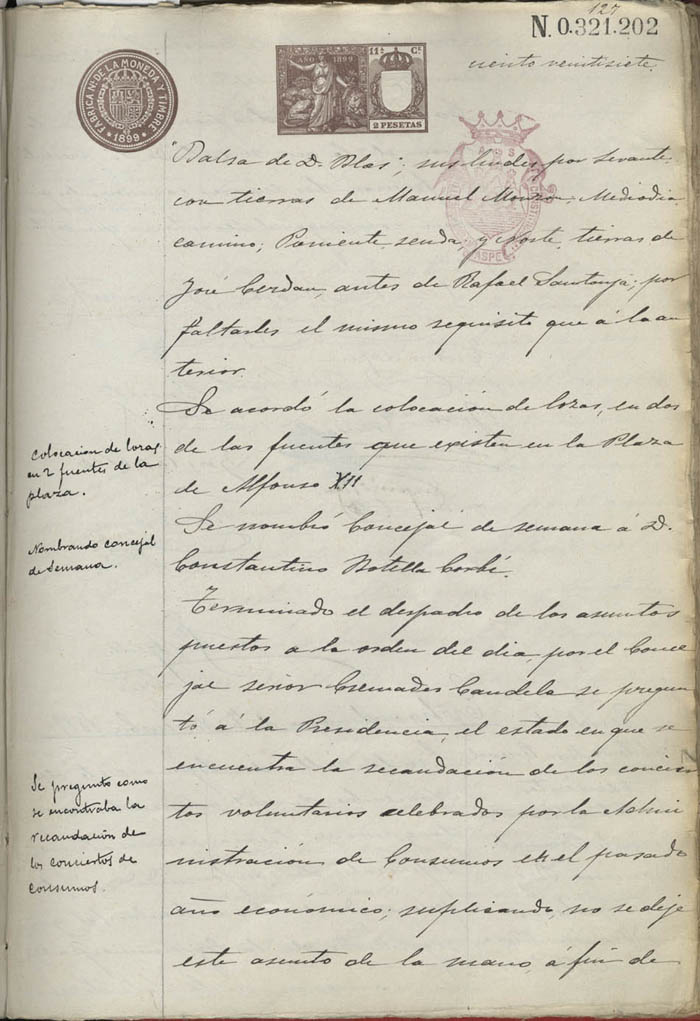 127
N. 0.321.202
ciento veintisiete.
FABRICA NL DE LA MONEDA Y TIMBRE
1899
AÑO 1899
11ª Cª
2 PESETAS
"Balsa de D. Blas", sus lindes, por Levante
con tierras de Manuel Monzo, Mediodia
camino; Poniente, senda, y Norte, tierras de
José Cerdan, antes de Rafael Santonja; por
faltarles el mismo requisito que á la an
terior.
Se acordó la colocación de lozas, en dos
de las fuentes que existen en la Plaza
de Alfonso XII
Se nombró Concejal de semana á D.
Constantino Botella Corbí.
Terminado el despacho de los asuntos
puestos a la orden del dia, por el Conce
jal señor Cremades Candela se pregun
tó á la Presidencia, el estado en que se
encuentra la recaudación de los concier
tos voluntarios celebrados por la Admi
nistración de Consumos en el pasado
año económico; suplicando, no se deje
este asunto de la mano, á fin de
Colocacion de lozas
en 2 fuentes de la
plaza.
Nombrando concejal
de Semana.
Se pregunto como
se encontraba la
recaudación de
los conciertos de
consumos.